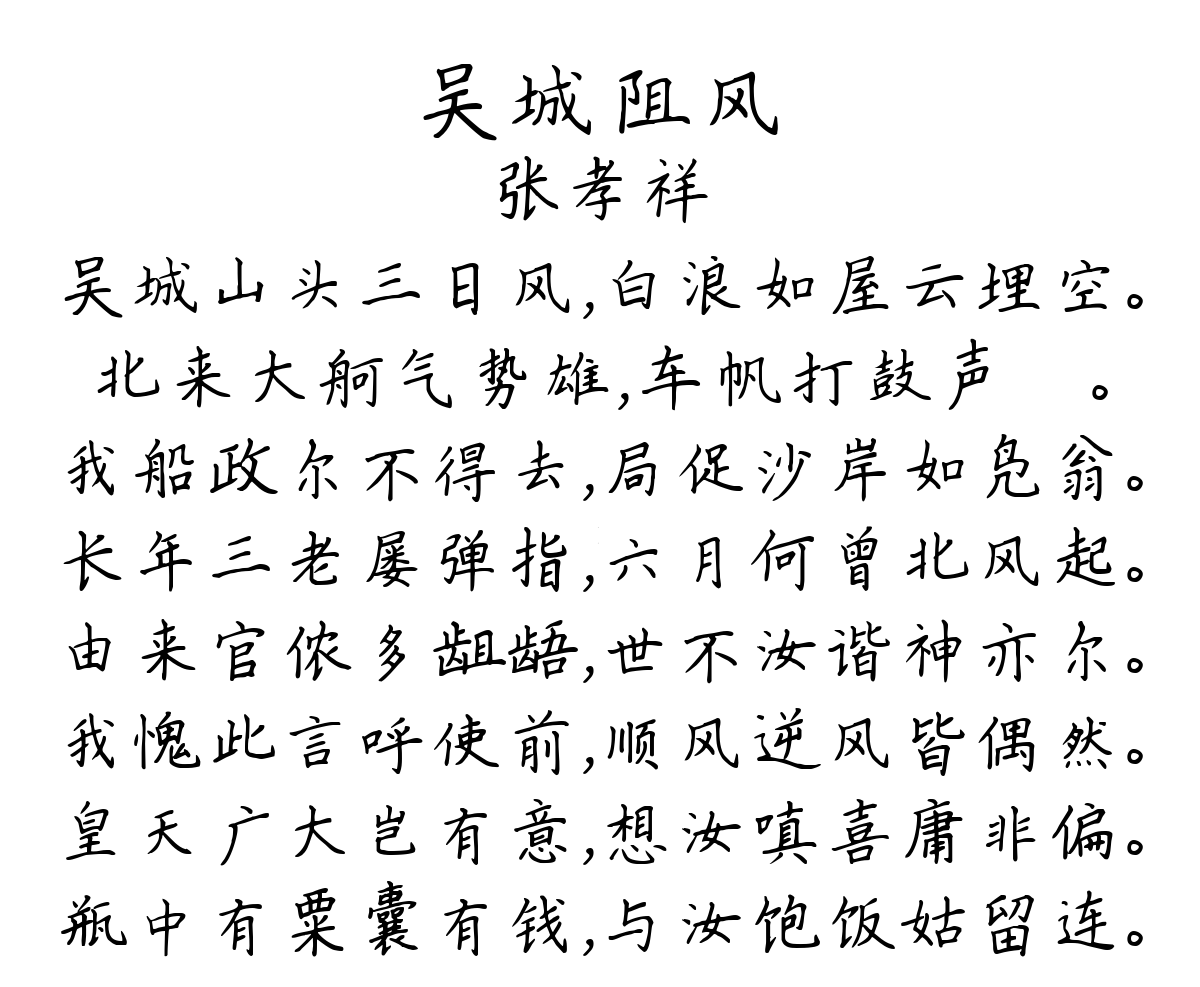 吴城阻风
张孝祥
吴城山头三日风,白浪如屋云埋空。
北来大舸气势雄,车帆打鼓声 。
我船政尔不得去,局促沙岸如凫翁。
长年三老屡弹指,六月何曾北风起。
由来官侬多龃龉,世不汝谐神亦尔。
我愧此言呼使前,顺风逆风皆偶然。
皇天广大岂有意,想汝嗔喜庸非偏。
瓶中有粟囊有钱,与汝饱饭姑留连。